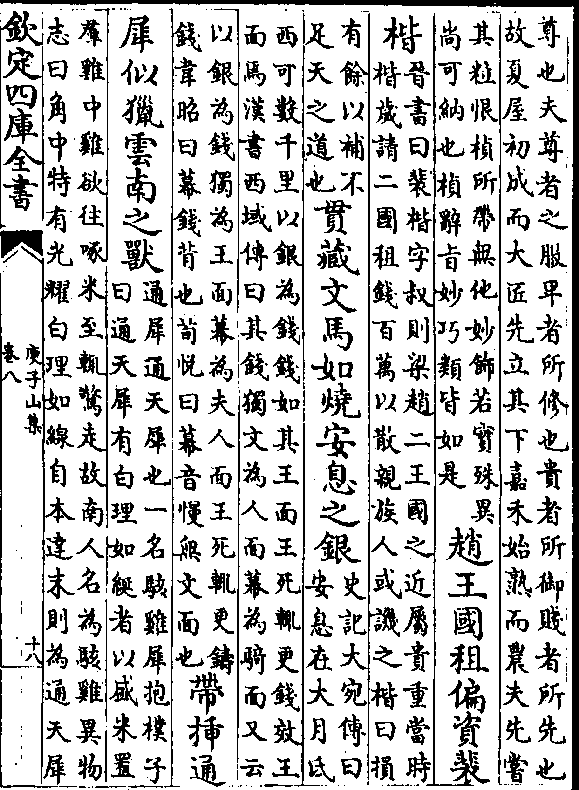 尊也夫尊者之服卑者所修也貴者所御賤者所先也
故夏屋初成而大匠先立其下嘉禾始熟而農夫先嘗
其粒恨楨所帶無他妙飾若實殊異
尚可納也楨辭旨妙巧類皆如是
趙王國租偏資裴
楷
晉書曰裴楷字叔則梁趙二王國之近屬貴重當時
楷歲請二國租錢百萬以散親族人或譏之楷曰損
有餘以補不
足天之道也
貫藏文馬如燒安息之銀
史記大宛傳曰
安息在大月氏
西可數千里以銀為錢錢如其王面王死輒更錢效王
面焉漢書西域傳曰其錢獨文為人面幕為騎而又云
以銀為錢獨為王面幕為夫人面王死輒更鑄
錢韋昭曰幕錢背也荀悅曰幕音慢無文面也
帶插通
犀似獵雲南之獸
通犀通天犀也一名駭雞犀抱樸子
曰通天犀有白理如綖者以盛米置
羣雞中雞欲往啄米至輒驚走故南人名為駭雞異物
志曰角中特有光耀白理如線自本達末則為通天犀
欽定四庫全書
庾子山集
卷八
十八